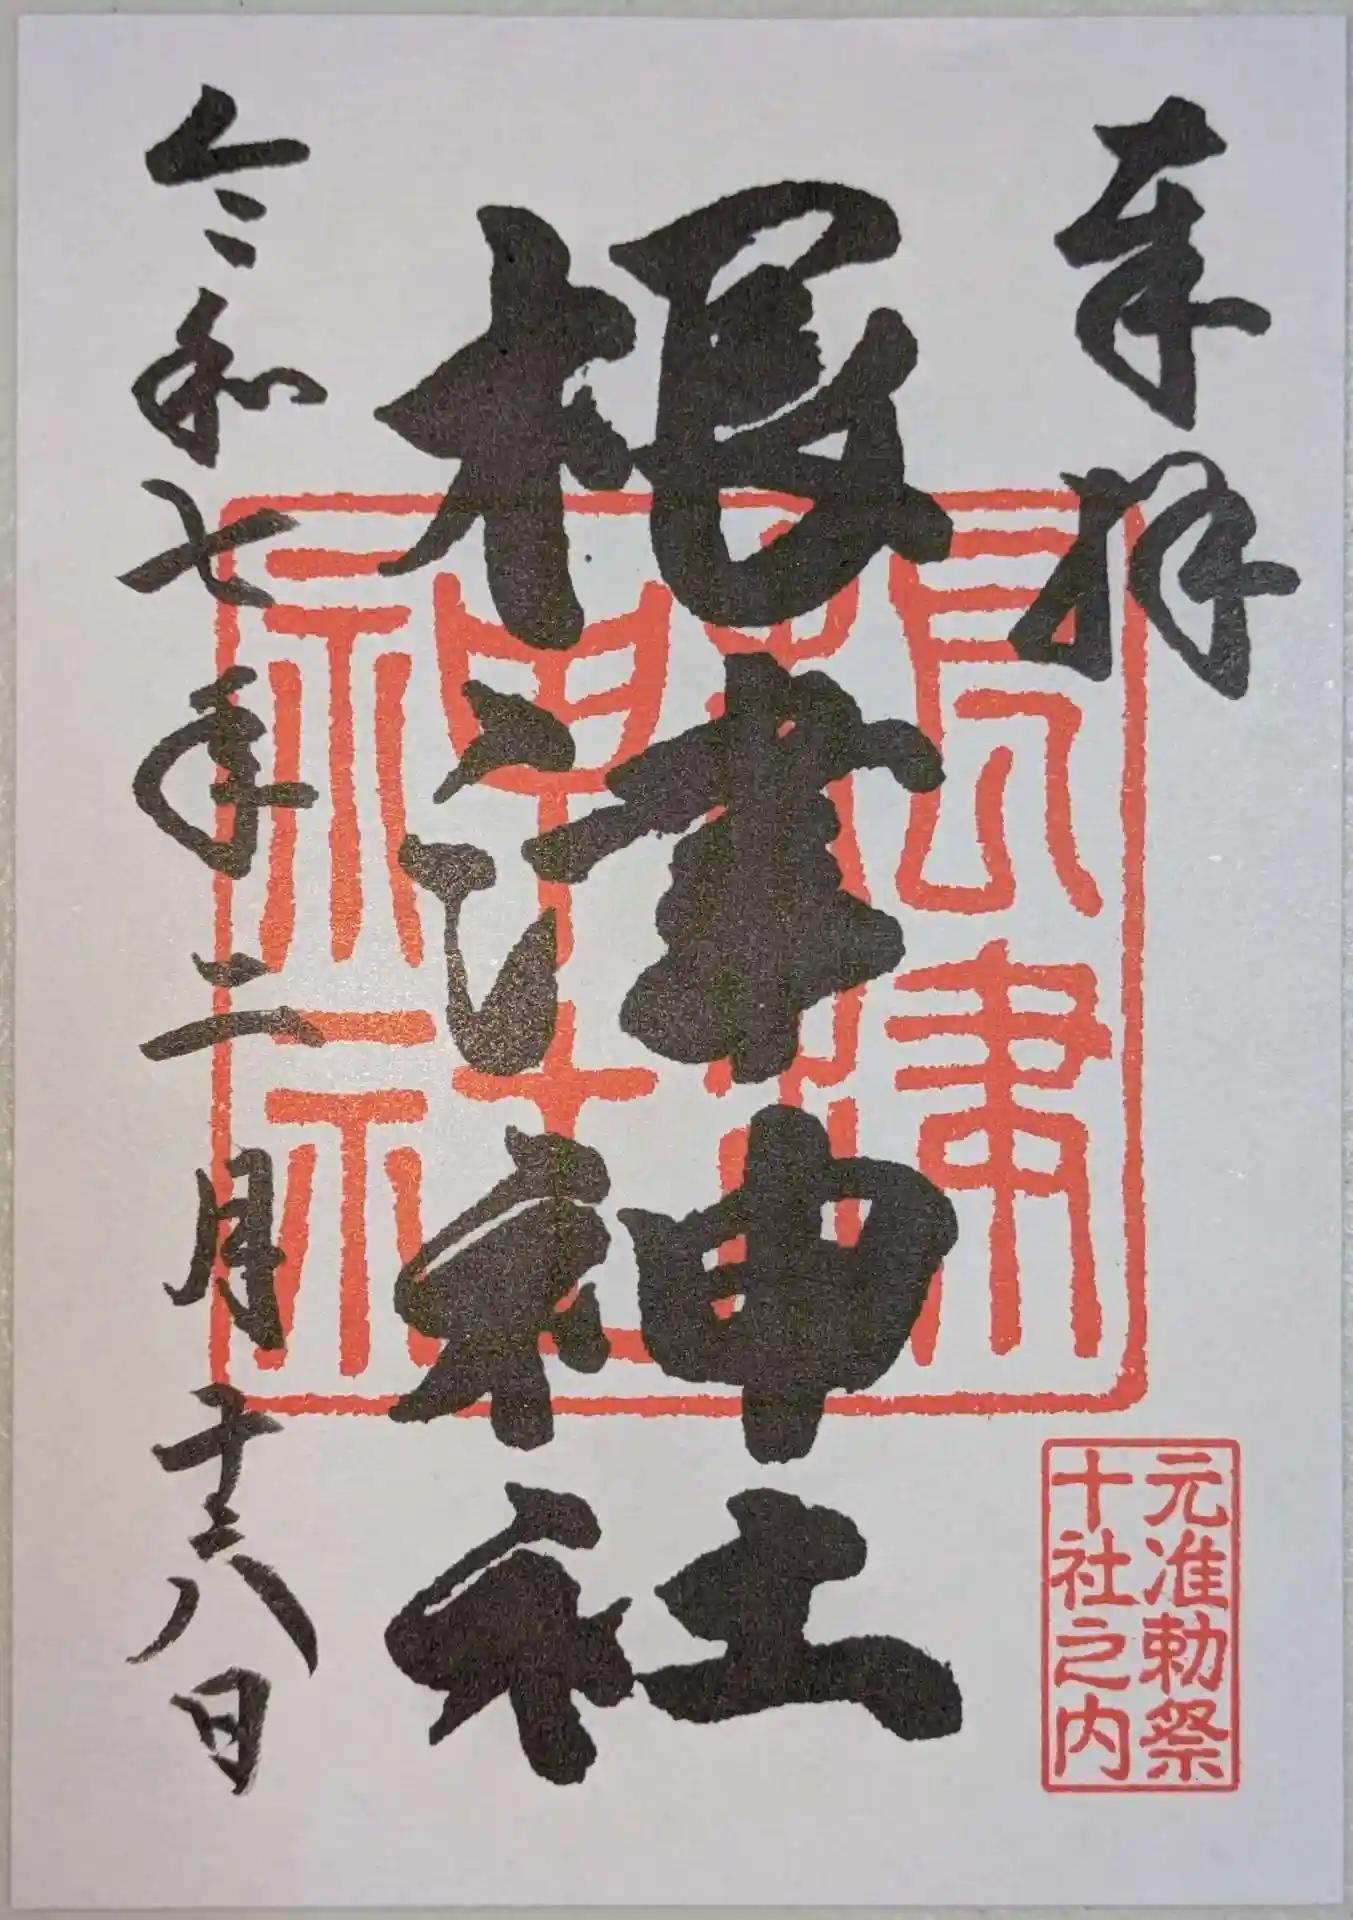 奉拝
根津神社
令和七年二月八日
根津
神社
元准勅祭
十社之内